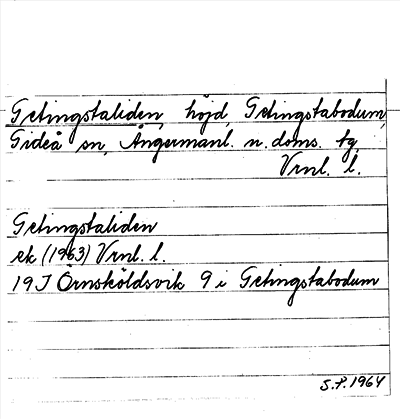 Getingstaliden, höjd, Getingstabodum,
Gideå sn, Ångermanl. n. doms. tg,
Vrnl. l.
Getingstaliden
ek (1963) Vrnl. l.
19 J Örnsköldsvik 9 i Getingstabodum
S.P. 1964